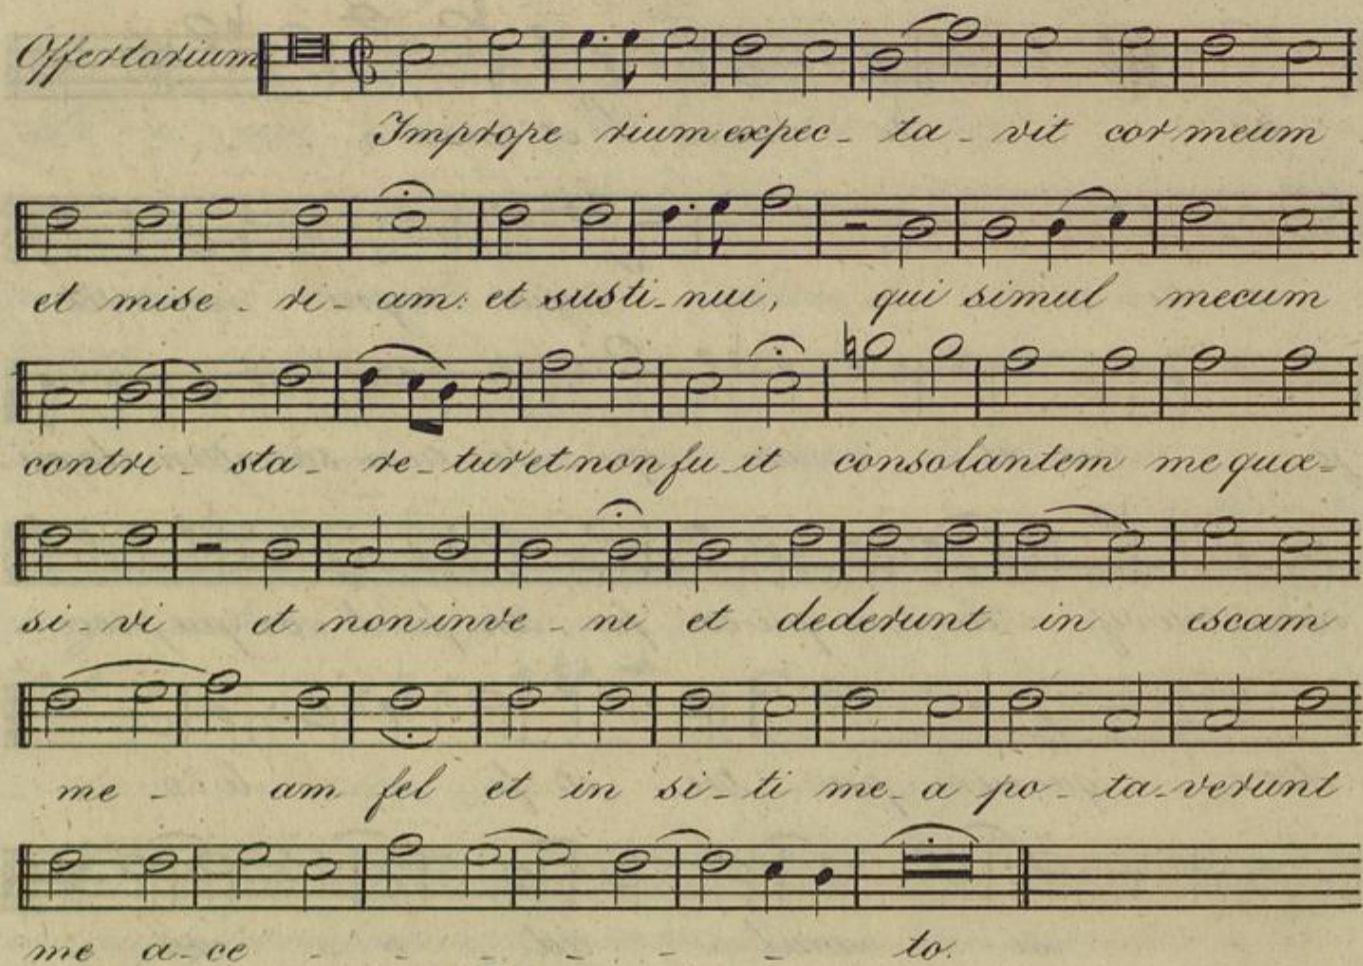 Offertorium
Imprope rium expec - ta - vit cor meum
et mise - ri - am: et susti - nui, qui simul mecum
contri - sta - re - tur et non fu - it consolantem me quæ -
si - vi et non inve - ni et dederunt in escam
me - am fel et in si - ti me - a po - ta - verunt
me a - ce - - - - - - to.